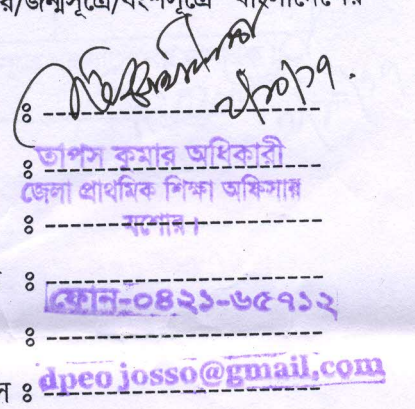 /জন্মসূত্রে/বংশসূত্রে বাংলাদেশের
ঃ
ঃ তাপস কুমার অধিকারী
জেলা প্রাথমিক শিক্ষা অফিসার
ঃ যশোর।
ঃ ফোন-০৪২১-৬৫৭১২
ঃ
ঃ dpeo josso@gmail.com